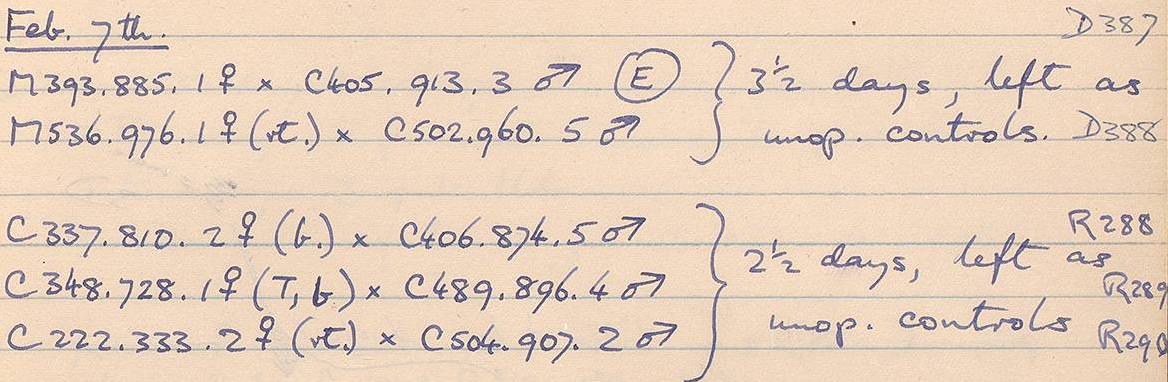 Feb. 7th. D387
M393.885.1♀ × C405.913.3 ♂ (E) } 3½ days, left as
M536.976.1♀ (rt.) × C502.960.5 ♂ unop. controls. D388
C337.810.2♀ (b.) × C406.874.5♂ R288
C348.728.1♀ (T, b.) × C489.896.4 ♂ } 2½ days, left as R289
C222.333.2♀ (rt.) × C504.907.2 ♂ unop. controls R290